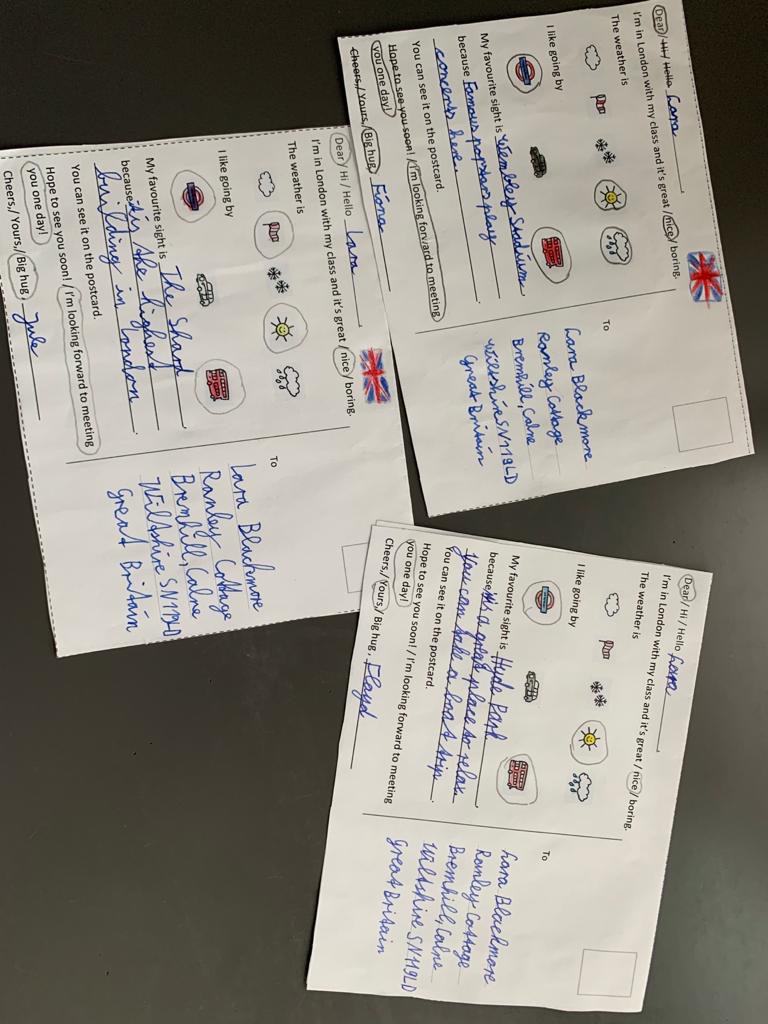 Dear / Hi / Hello Lara
I'm in London with my class and it's great / nice / boring.
The weather is
I like going by
My favourite sight is Wembley Stadium
because Famous popstars play
concerts here.
You can see it on the postcard.
Hope to see you soon! / I'm looking forward to meeting
you one day!
Cheers, / Yours, / Big hug, Fiona
To
Lara Blackmore
Ranley Cottage
Bremhill, Calne
Wiltshire SN119LD
Great Britain
Dear / Hi / Hello Lara
I'm in London with my class and it's great / nice / boring.
The weather is
I like going by
My favourite sight is The Shard
because it is the highest
building in London
You can see it on the postcard.
Hope to see you soon! / I'm looking forward to meeting
you one day!
Cheers, / Yours, / Big hug, Jule
To
Lara Blackmore
Ranley Cottage
Bremhill, Calne
Wiltshire SN119LD
Great Britain
Dear / Hi / Hello Lara
I'm in London with my class and it's great / nice / boring.
The weather is
I like going by
My favourite sight is Hyde Park
because it's a great place to relax
You can take a boat trip.
You can see it on the postcard.
Hope to see you soon! / I'm looking forward to meeting
you one day!
Cheers, / Yours, / Big hug, Floyd
To
Lara Blackmore
Ranley Cottage
Bremhill, Calne
Wiltshire SN119LD
Great Britain